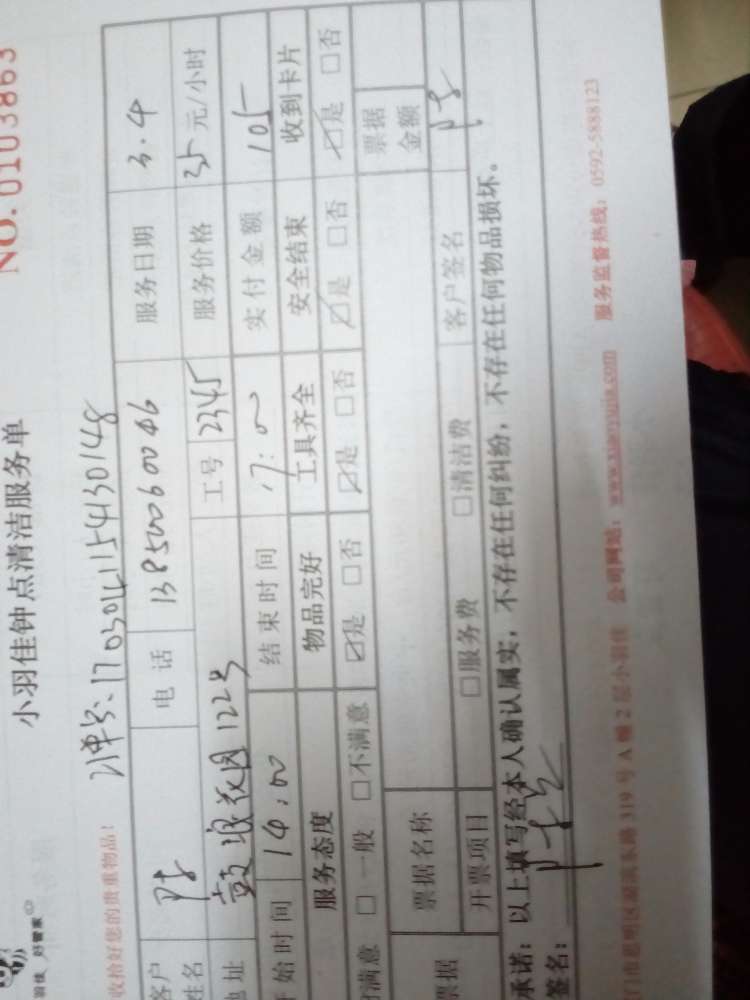 羽佳 好管家
小羽佳钟点清洁服务单
NO. 0103863
收拾好您的贵重物品！
订单号：1703041154130148
客户姓名 电话 13850060046 服务日期 3.4
地址 鼓浪花园122号 工号 2345 服务价格 35元/小时
开始时间 14:00 结束时间 17:00 实付金额 105
服务态度 物品完好 工具齐全 安全结束 收到卡片
满意 □一般 □不满意 ☑是 □否 ☑是 □否 ☑是 □否 ☑是 □否
票据 票据名称 票据金额
开票项目 □服务费 □清洁费 客户签名
承诺：以上填写经本人确认属实，不存在任何纠纷，不存在任何物品损坏。
签名：
门市思明区湖滨东路319号A幢2层小羽佳 公司网站：www.xiaoyujia.com 服务监督热线：0592-5888123